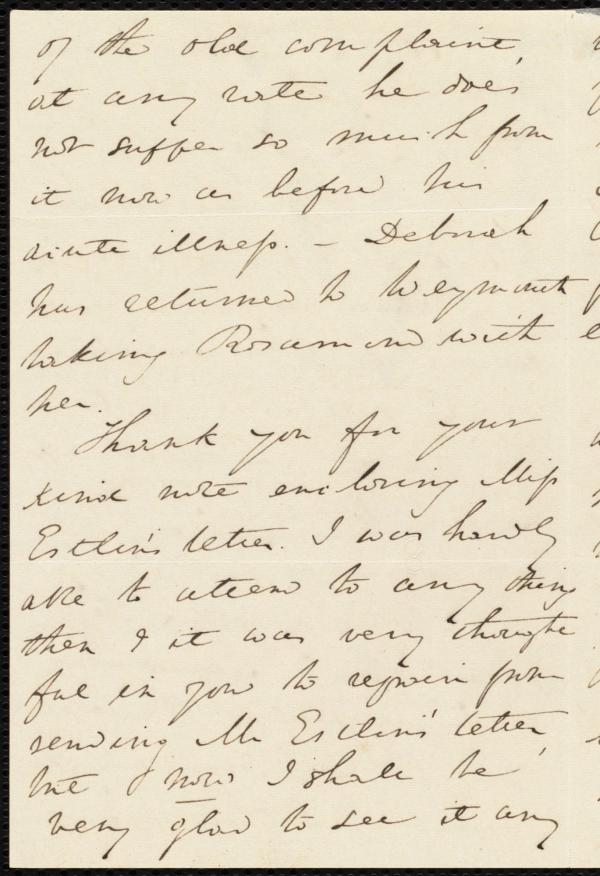 of the old complaint,
at any rate he does
not suffer so much from
it now as before his
acute illness. – Deborah
has returned to Weymouth
taking Rosamond with
her.
Thank you for your
kind note enclosing Miss
Estlin's letter. I was hardly
able to attend to any thing
then & it was very thought
ful in you to refrain from
sending Mr Estlin's letter,
but now I shall be
very glad to see it any